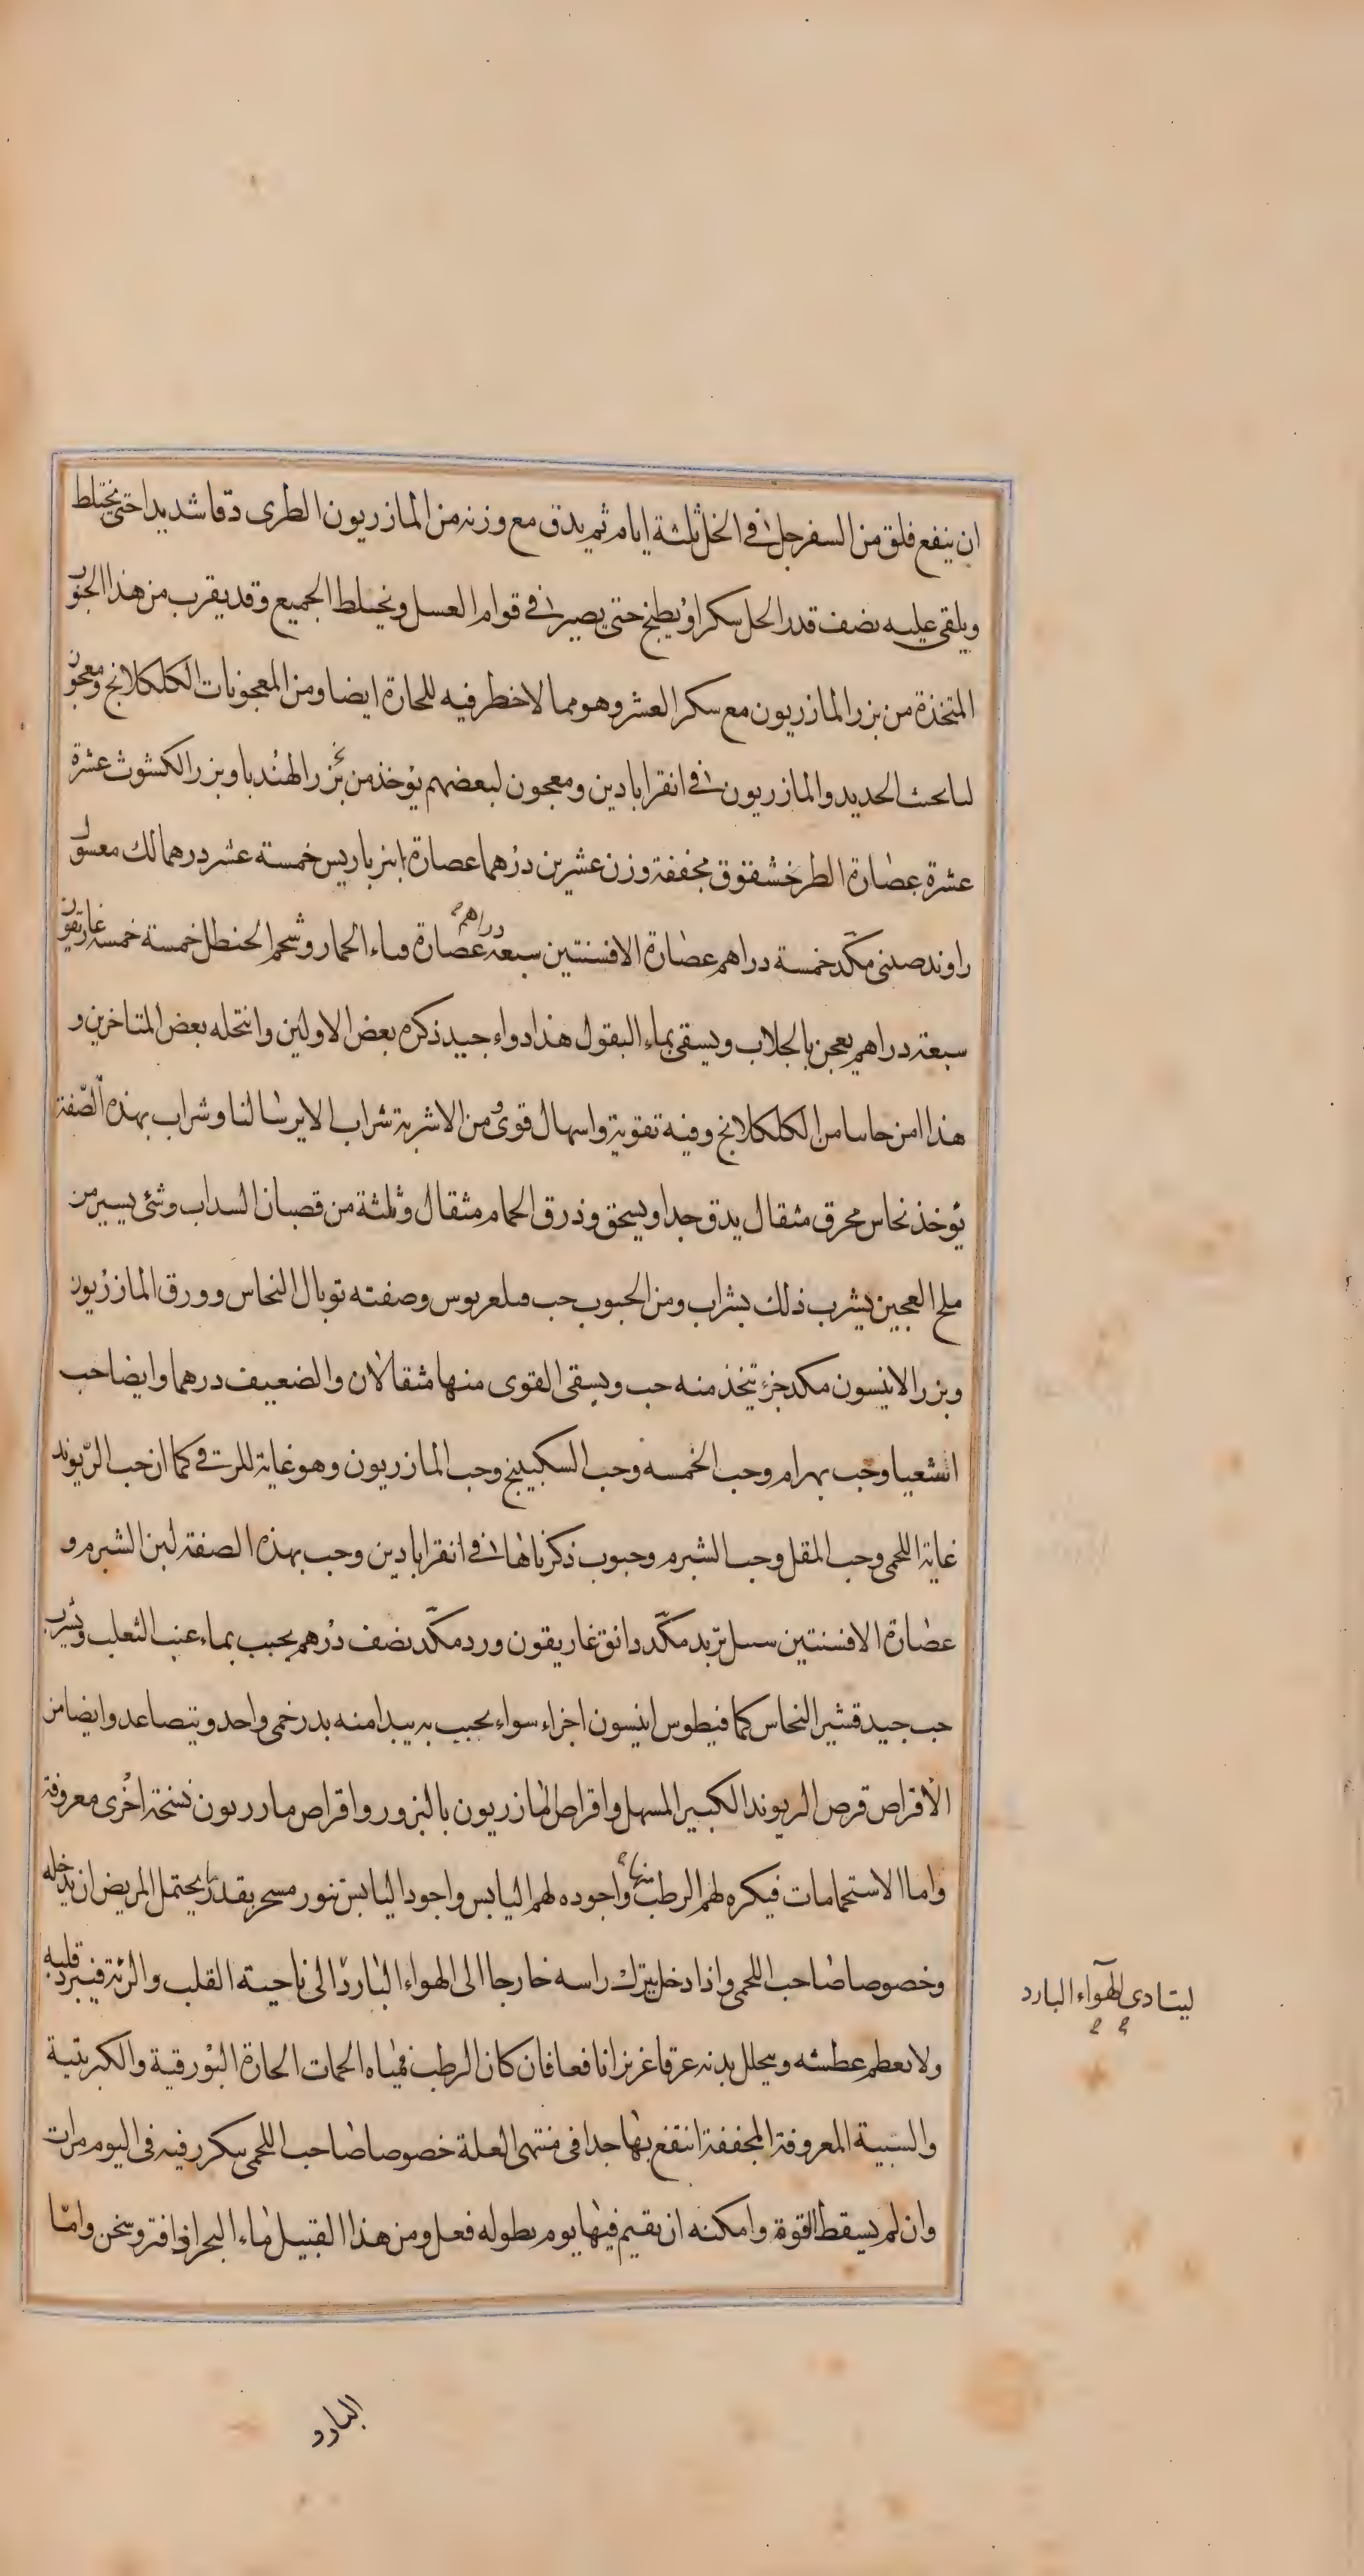 ان ينفع فلق من السفرجل فى الخل ثلثة ايام ثم يدق مع وزنه من المازريون الطرى دقا شديدا حتى يختلط
ويلقى عليه نصف قدر الخل سكرا ويطبخ حتى يصير فى قوام العسل ويخلط الجميع وقد يقرب من هذا الحبوب
المتخذة من بزر المازريون مع سكر العشر وهو مما لا خطر فيه للحارة ايضا ومن المعجونات الكلكلانج ومعجون
لنا بخبث الحديد والمازريون فى انقراباذين ومعجون لبعضهم يؤخذ من بزر الهندبا وبزر الكشوث عشرة
عشرة عصارة الطرخشقوق مجففة وزن عشرين درهما عصارة انبرباريس خمسة عشر درهما لك مغسول
راوند صينى مكد خمسة دراهم عصارة الافسنتين سبعة دراهم عصارة قثاء الحمار وشحم الحنظل خمسة خمسة غاريقون
سبعة دراهم يعجن بالجلاب ويسقى بماء البقول هذا دواء جيد ذكره بعض الاولين وانتحله بعض المتاخرين و
هذا امن حاسا من الكلكلانج وفيه تقوية واسهال قوى ومن الاشربة شراب الايرسا لنا وشراب بهذه الصفة
يؤخذ نحاس محرق مثقال يدق جدا ويسحق وذرق الحمام مثقال وثلثة من قصبان السداب وشئ يسير من
ملح العجين يشرب ذلك بشراب ومن الحبوب حب وصفته توبال النحاس وورق المازريون
وبزر الانيسون مكد جزء يتخذ منه حب ويسقى القوى منها مثقالان والضعيف درهما وايضا حب
اشعيا وحب بهرام وحب الخمسه وحب السكبينج وحب المازريون وهو غاية للزقى كما ان حب الريوند
غاية اللحمى وحب المقل وحب الشبرم وحبوب ذكرناها فى انقراباذين وحب بهذه الصفة لبن الشبرم و
عصارة الافسنتين سنبل تربد مكد دانق غاريقون ورد مكد نصف درهم يحبب بماء عنب الثعلب ويشرب
حب جيد قشير النحاس كمافيطوس انيسون اجزاء سواء يحبب به يبدا منه بدرخمى واحد ويتصاعد وايضا من
الاقراص قرص الريوند الكبير المسهل واقراص المازريون بالبزور واقراص مازريون نسخة اخرى معروفة
واما الاستحمامات فيكره لهم الرطب منها واجوده لهم اليابس واجود اليابس تنور مسجر بقدر ما يحتمل المريض ان يدخله
وخصوصا صاحب اللحمى واذا دخل يترك راسه خارجا الى الهواء البارد الى ناحية القلب والرئة فيبرد قلبه
ليتادى الهوآء البارد
ولا يعظم عطشه ويحلل بدنه عرقا غزيرا نافعا فان كان الرطب فمياه الحمات الحارة البورقية والكبريتية
والشبية المعروفة المجففة انتفع بها جدا فى منتهى العلة خصوصا صاحب اللحمى يتكرر فيه فى اليوم مرات
وان لم يسقط القوة وامكنه ان يقيم فيها يوم بطوله فعل ومن هذا القبيل ماء البحر اذا فتر وسخن وامّا
البارد